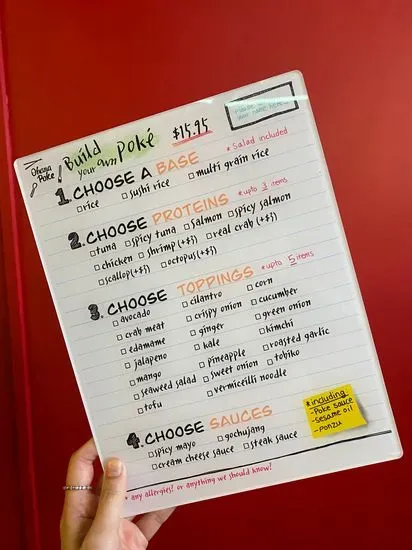 Ohana Poke
Build your own Poké
$15.95
please
your name here
1. CHOOSE A BASE
*Salad included
□ rice □ sushi rice □ multi grain rice
2. CHOOSE PROTEINS *upto 3 items
□ tuna □ spicy tuna □ Salmon □ spicy salmon
□ chicken □ shrimp (+$) □ real crab (+$)
□ scallop (+$) □ octopus (+$)
3. CHOOSE TOPPINGS *upto 5 items
□ avocado □ cilantro □ corn
□ crab meat □ crispy onion □ cucumber
□ edamame □ ginger □ green onion
□ jalapeno □ kale □ kimchi
□ mango □ pineapple □ roasted garlic
□ seaweed salad □ sweet onion □ tobiko
□ tofu □ vermicelli noodle
4. CHOOSE SAUCES
□ spicy mayo □ gochujang
□ cream cheese sauce □ steak sauce
*including
-Poke sauce
-sesame oil
-ponzu
* any allergies? or anything we should know?